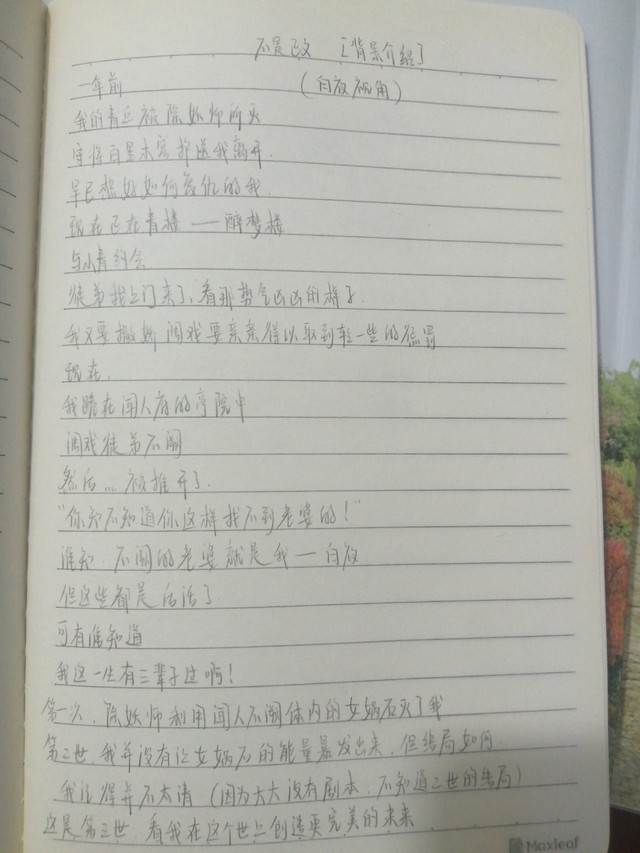 不是正文 [背景介绍]
一年前 (白放视角)
我的青丘被除妖师所灭
守将百里未容都送我离开.
早已想好如何复仇的我.
现在正在青楼——醉梦楼
与小青约会
徒弟找上门来了,看那势气凶凶的样子.
我又要撒娇调戏要亲亲得以取到轻一些的惩罚
现在,
我跪在闻人府的序院中
调戏徒弟不阕
然后…被推开了.
“你知不知道你这样找不到老婆的!”
谁知.不阕的老婆就是我—白放
但这些都是后话了.
可有谁知道
我这一生有三辈子过啊!
第一次,除妖师利用闻人不阕体内的女娲石灭了我
第二世,我并没有让女娲石的能量暴发出来,但结局如何.
我记得并不太清(因为太太没有剧本,不知道二世的结局)
这是第三世,看我在这个世上创造更完美的未来
Maxleaf